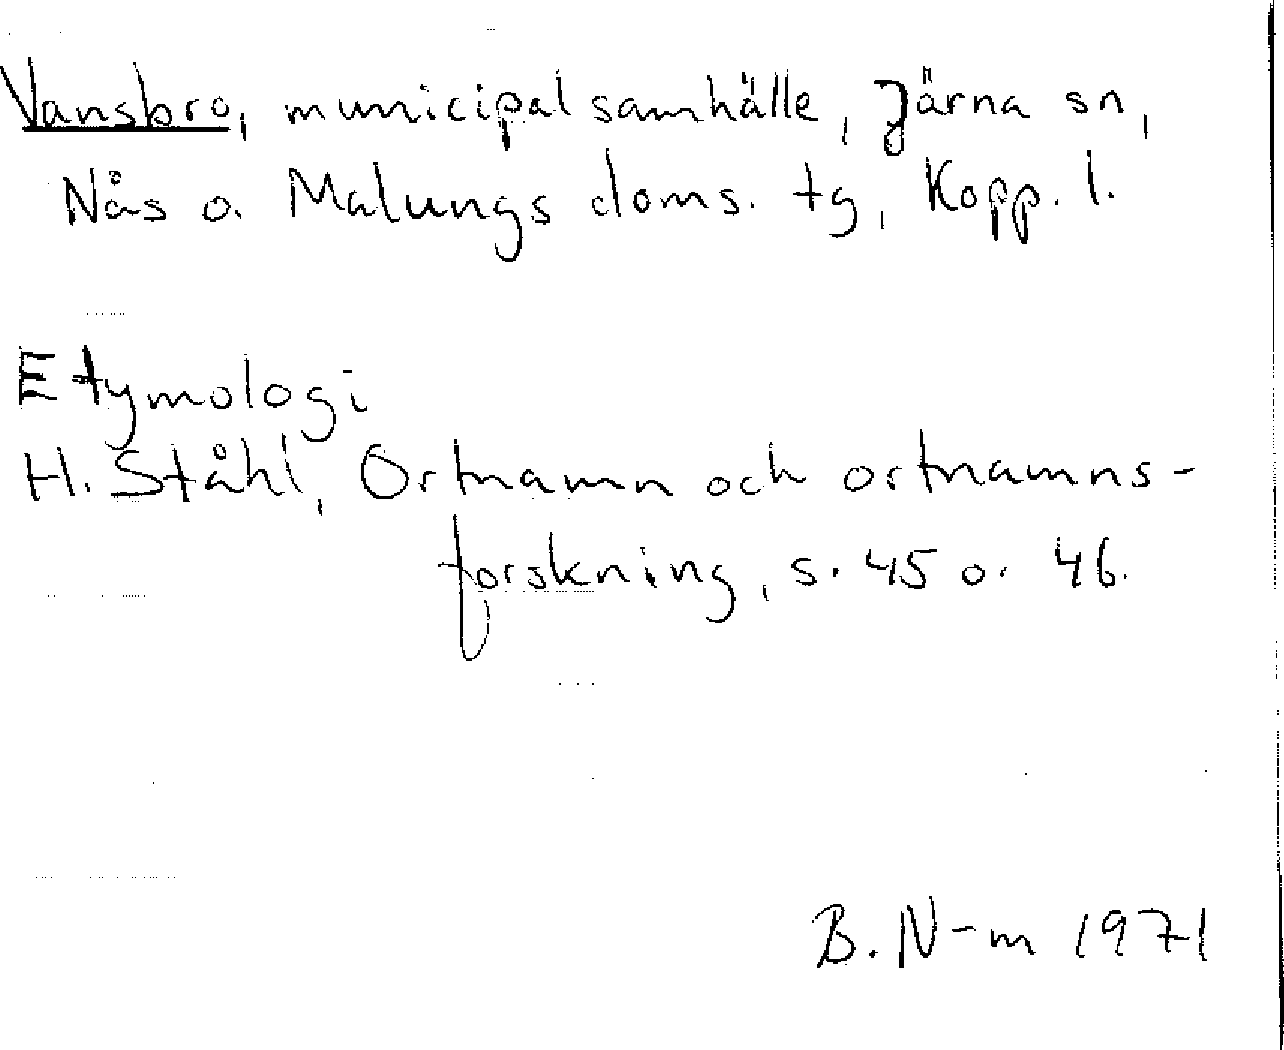 Vansbro, municipalsamhälle, Järna sn,
Nås o. Malungs doms. tg, Kopp. l.
Etymologi
H. Ståhl, Ortnamn och ortnamns-
forskning, s. 45 o. 46.
B. N-m 1971